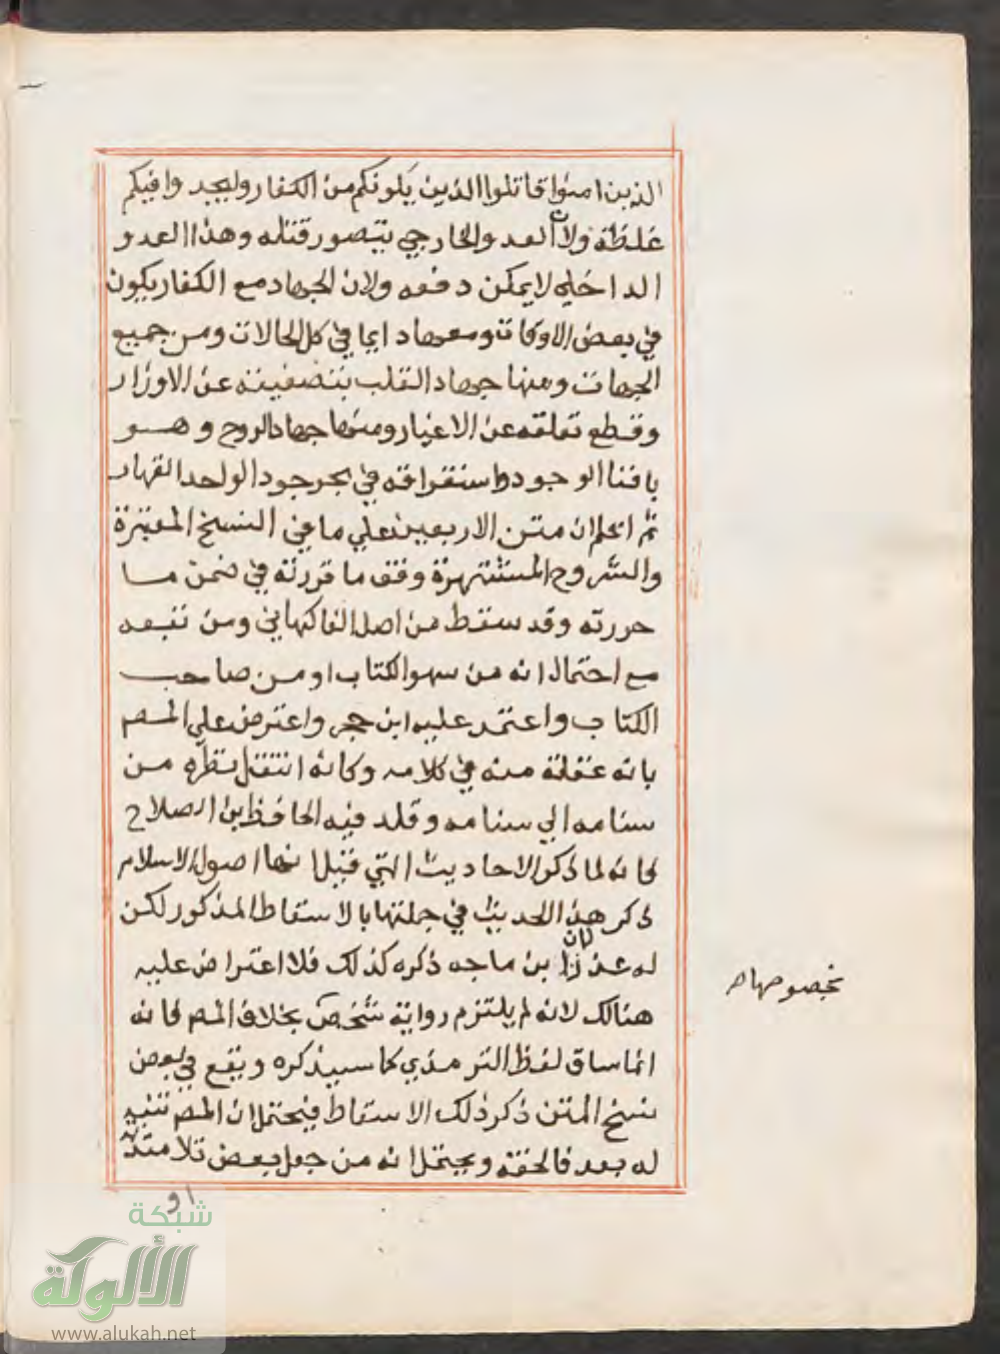 الذين امنوا قاتلوا الذين يلونكم من الكفار وليجدوا فيكم
غلظة ولان العدو الخارجي يتصور قتله وهذا العدو
الداخلي لا يمكن دفعه ولان الجهاد مع الكفار يكون
في بعض الاوقات ومعها دايما في كل الحالات ومن جميع
الجهات ومنها جهاد القلب بتصفيته عن الاوزار
وقطع تعلقه عن الاغيار ومنها جهاد الروح وهو
بافنا الوجود واستغراقه في بحر جود الواحد القهار
ثم اعلم ان متن الاربعين علي ما في النسخ المعتبرة
والشروح المشتهرة وفق ما قررته في ضمن ما
حررته وقد سقط من اصل الفاكهاني ومن تبعه
مع احتمال انه من سهو الكتاب او من صاحب
الكتاب واعتمد عليه ابن حجر واعترض علي المص
بانه غفلة منه في كلامه وكانه انتقل نظره من
سنامه الي سنامه وقلد فيه الحافظ بن الصلاح
فانه لما ذكر الاحاديث التي قيل انها اصول الاسلام
ذكر هذا الحديث في جملتها بالاسقاط المذكور لكن
له عذر فان بن ماجه ذكره كذلك فلا اعتراض عليه
هنالك لانه لم يلتزم رواية شخص بخلاف المص فانه
انما ساق لفظ الترمذي كما سيذكره ويقع في بعض
نسخ المتن ذكر ذلك الاسقاط فيحتمل ان المص تنبه
له بعد فالحقه ويحتمل انه من جعل بعض تلامتذته
او
بخصوصها ص
شبكة
الألوكة
www.alukah.net